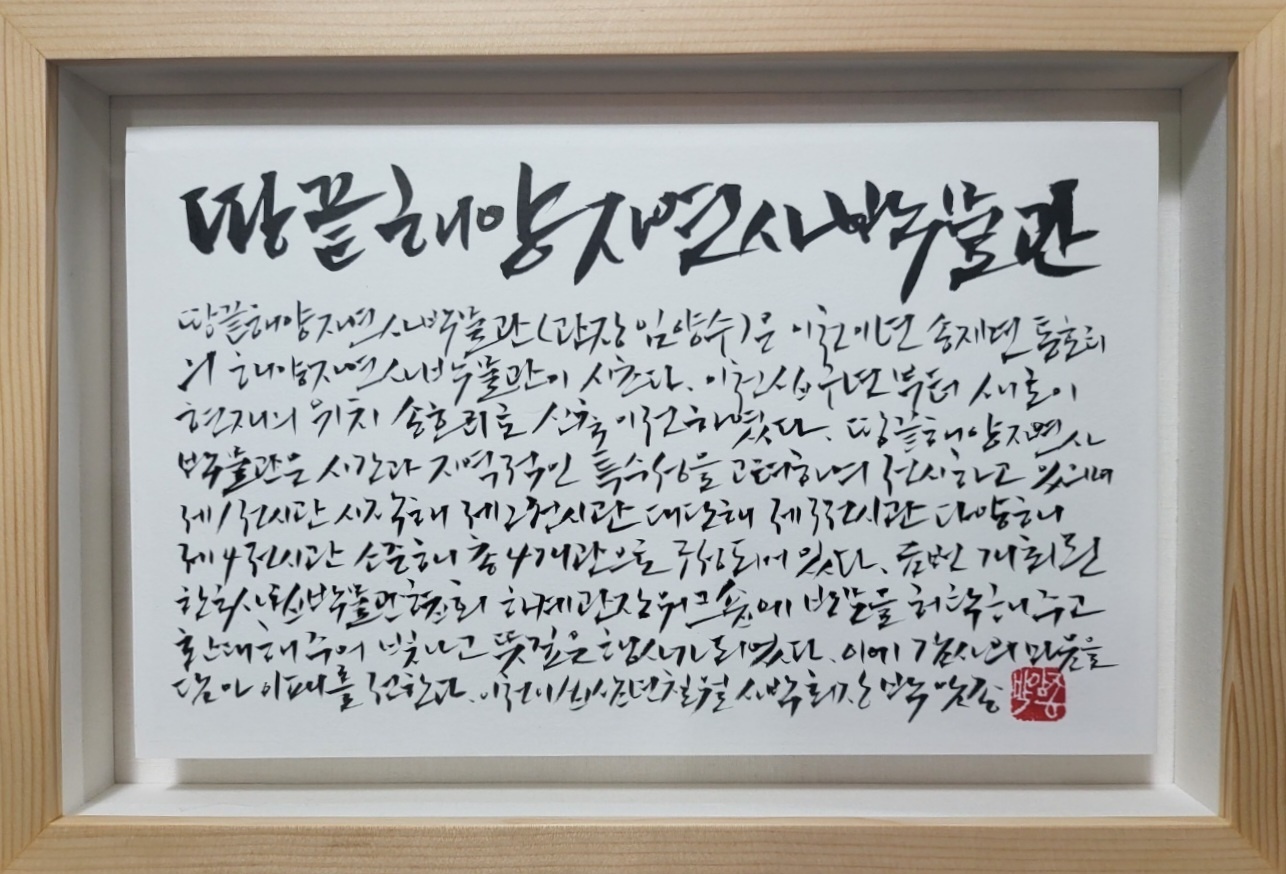 땅끝해양자연사박물관
땅끝해양자연사박물관(관장 임양수)은 이천이년 송지면 통호리
의 해양자연사박물관이 시초다. 이천십구년부터 새로이
현재의 위치 송호리로 신축 이전하였다. 땅끝해양자연사
박물관은 시간과 지역적인 특수성을 고려하여 전시하고 있으며
제1전시관 시작해 제2전시관 대단해 제3전시관 다양해
제4전시관 소중해 총 4개관으로 구성되어 있다. 금번 개최된
한국사립박물관협회 하계관장워크숍에 발걸음을 허락해주고
환대해주어 빛나고 뜻깊은 행사가 되었다. 이에 감사의 마음을
담아 이 패를 전한다. 이천이십삼년칠월 사박회장 박암종
박암종